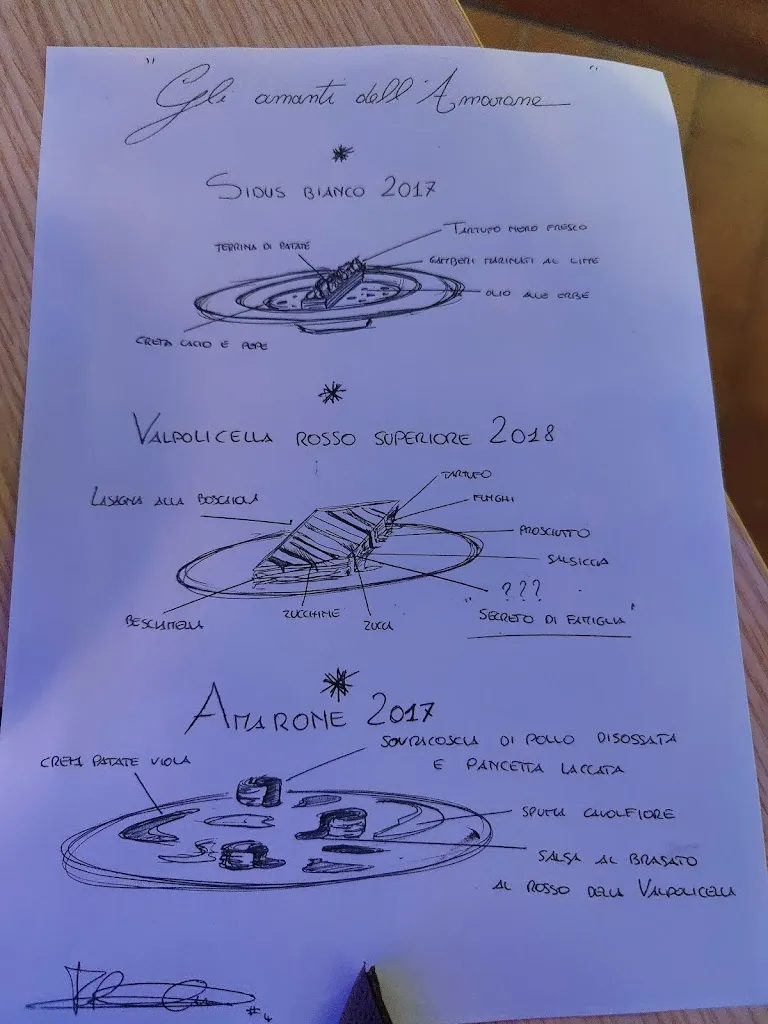 " Gli amanti dell'Amarone "
SIDUS BIANCO 2017
TARTUFO NERO FRESCO
TERRINA DI PATATE
GAMBERI MARINATI AL LIME
OLIO ALLE ERBE
CREMA CACIO E PEPE
VALPOLICELLA ROSSO SUPERIORE 2018
TARTUFO
LASAGNA ALLA BOSCAIOLA
FUNGHI
PROSCIUTTO
SALSICCIA
???
BESCIAMELLA
ZUCCHINE
ZUCCA
"SECRETO DI FAMIGLIA"
AMARONE 2017
SOVRACOSCIA DI POLLO DISOSSATA
E PANCETTA LACCATA
CREMA PATATE VIOLA
SPUMA CAVOLFIORE
SALSA AL BRASATO
AL ROSSO DELLA VALPOLICELLA
#4